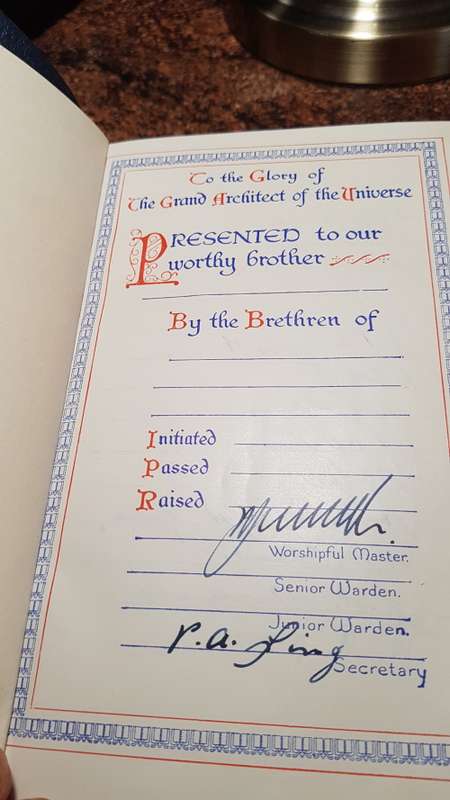 To the Glory of
The Grand Architect of the Universe
PRESENTED to our
worthy brother
By the Brethren of
Initiated
Passed
Raised
Worshipful Master.
Senior Warden.
Junior Warden.
Secretary